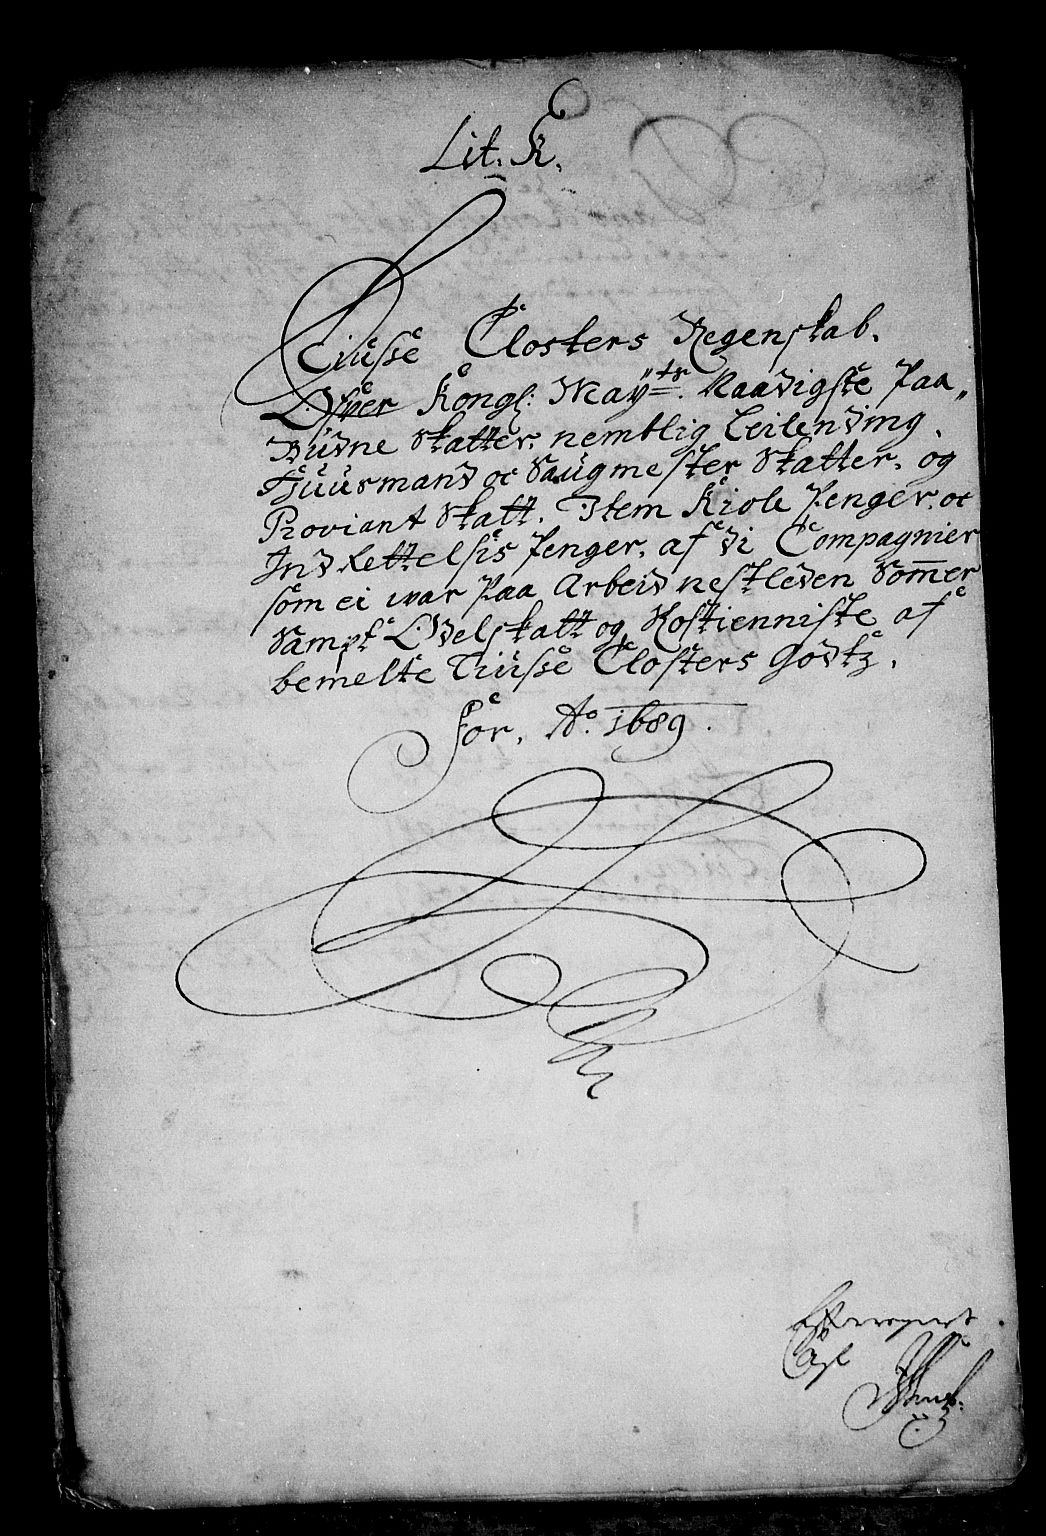 Lit. K.
Giusse Closters Regenskab.
Ofver Kongl: May:tz Naadigste Paa„
Büdne Skatter, nemblig Leilending,
Huusmand oc Saugmester Skatter, og
Proviant Skatt. Item Kiole Penger, oc
Ind Rettelsis Penger, af di Compagnier
som ei war Paa Arbeid nestleden Sommer
Sampt Odelskatt og Rostienniste af
bemelte Giusse Closters Godtz.
for, Ao. 1689.